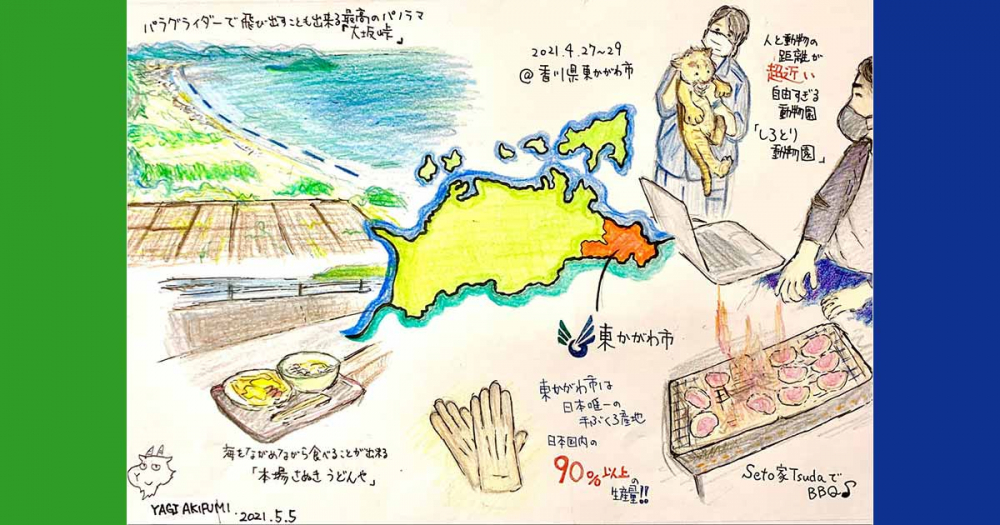 パラグライダーで飛び出すことも出来る最高のパノラマ
「大坂峠」
2021.4.27~29
@ 香川県東かがわ市
人と動物の
距離が
超近い
自由すぎる
動物園
「しろとり
動物園」
東かがわ市
東かがわ市は
日本唯一の
手ぶくろ産地
日本国内の
90%以上の
生産量!!
海をながめながら食べることが出来る
「本場さぬきうどんや」
Seto家Tsudaで
BBQ♪
YAGI AKIFUMI. 2021.5.5